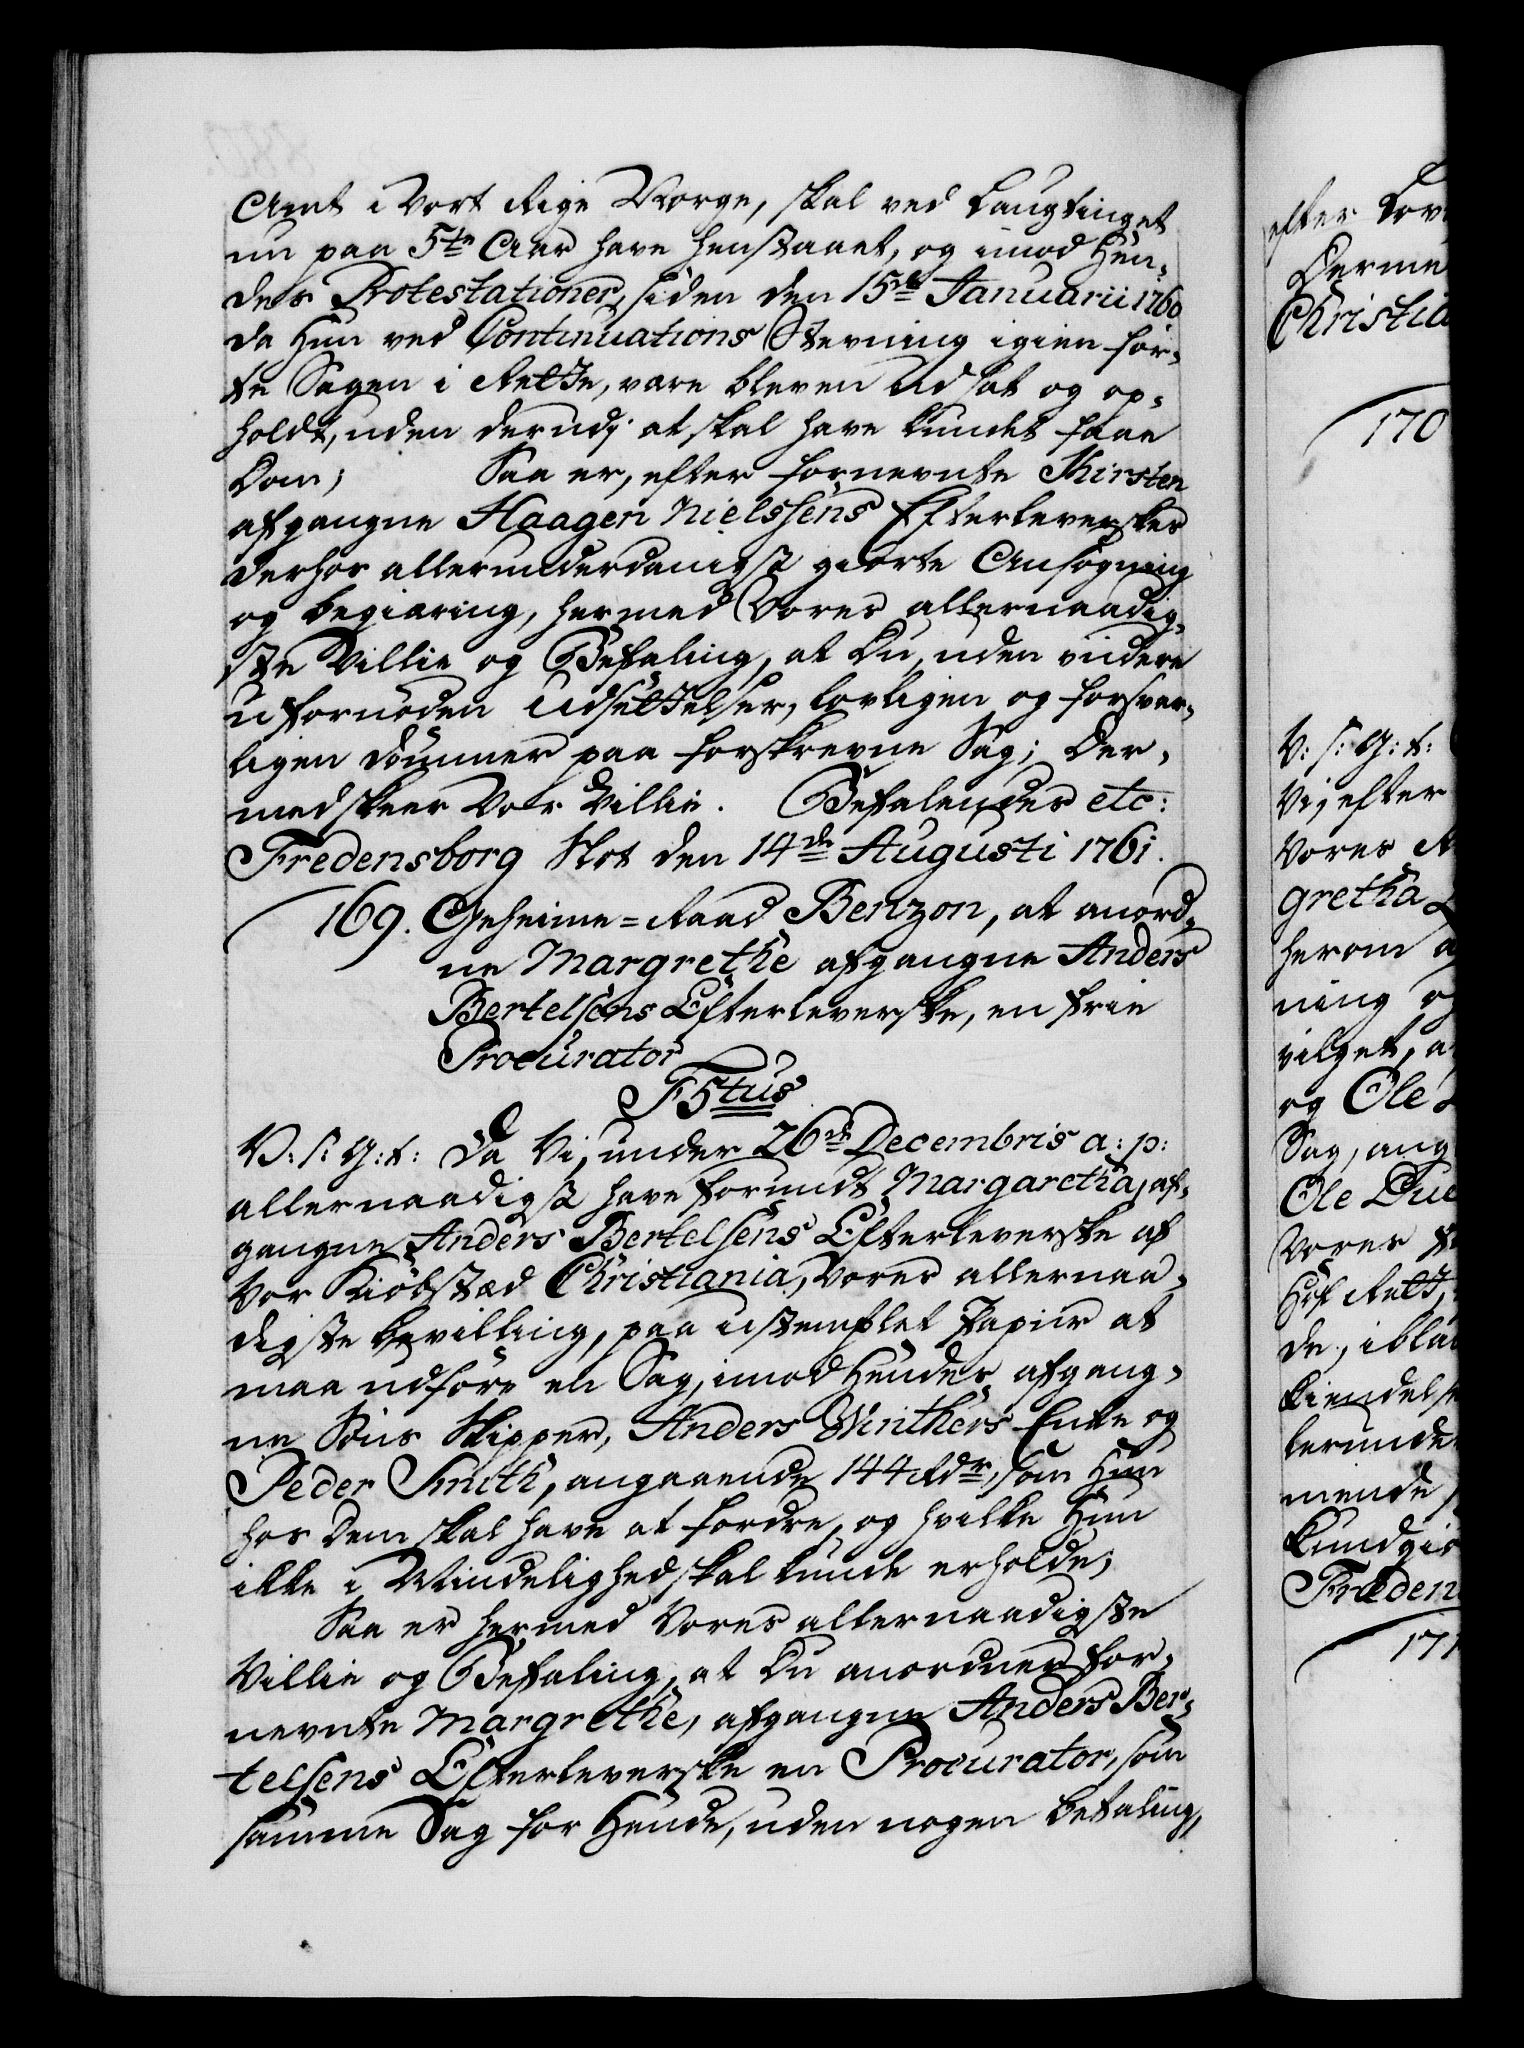 Amt i Vort Rige Norge, skal ved Laugtinget
nu paa 5te Aar have henstaaet, og imod Hen-
des Protestationer, siden den 15de Januarii 1760
da Hun ved Continuations Stevning igien før-
te Sagen i Rette, være bleven udsat og op-
holdt, uden derudj at skal have kundet faae
Dom; Saa er, efter fornevnte Kirsten
afgangne Haagen Nielssens Efterleverskes
derhos allerunderdanigst giorte Ansøgning
og begiæring, hermed Vores allernaadig-
ste Villie og Befaling, at Du, uden videre
ufornøden Udsættelser, lovligen og forsvar-
ligen dømmer paa forskrevne Sag; Der-
med skeer Vor Villie. Befalendes etc:
Fredensborg Slot den 14de Augusti 1761.
169. Geheime-Raad Benzon, at anord-
ne Margrethe afgangne Anders
Bertelsens Efterleverske, en frie
Procurator
F5tus
V: S: G: t: Da Vi, under 26de Decembris a: p:
allernaadigst have forundt Margaretha, af-
gangne Anders Bertelsens Efterleverske af
Vor Kiøbstæd Christiania, Vores allernaa-
digste bevilling, paa ustemplet Papiir at
maa udføre en Sag, imod Hendes afgang-
ne Søns Skipper, Anders Winthers Enke og
Peder Smith, angaaende 144 Rdr, som Hun
hos Dem skal have at fordre, og hvilke Hun
ikke i Mindelighed skal kunde erholde;
Saa er hermed Vores allernaadigste
Villie og Befaling, at Du anordner for-
nevnte Margrethe, afgangne Anders Ber-
telsens Efterleverske en Procurator, som
samme Sag for Hende, uden nogen betaling,
efter Lov
Derme
Christia
170
V: S: G: t:
Vi, efter
Vores
gretha
herom
ning og
vilget, a
og Ole
Sag, ang
Ole Due
Vores
Hof Rett,
de, iblan
Kiendels
lerunde
mende
Kundgiø
Freden
171